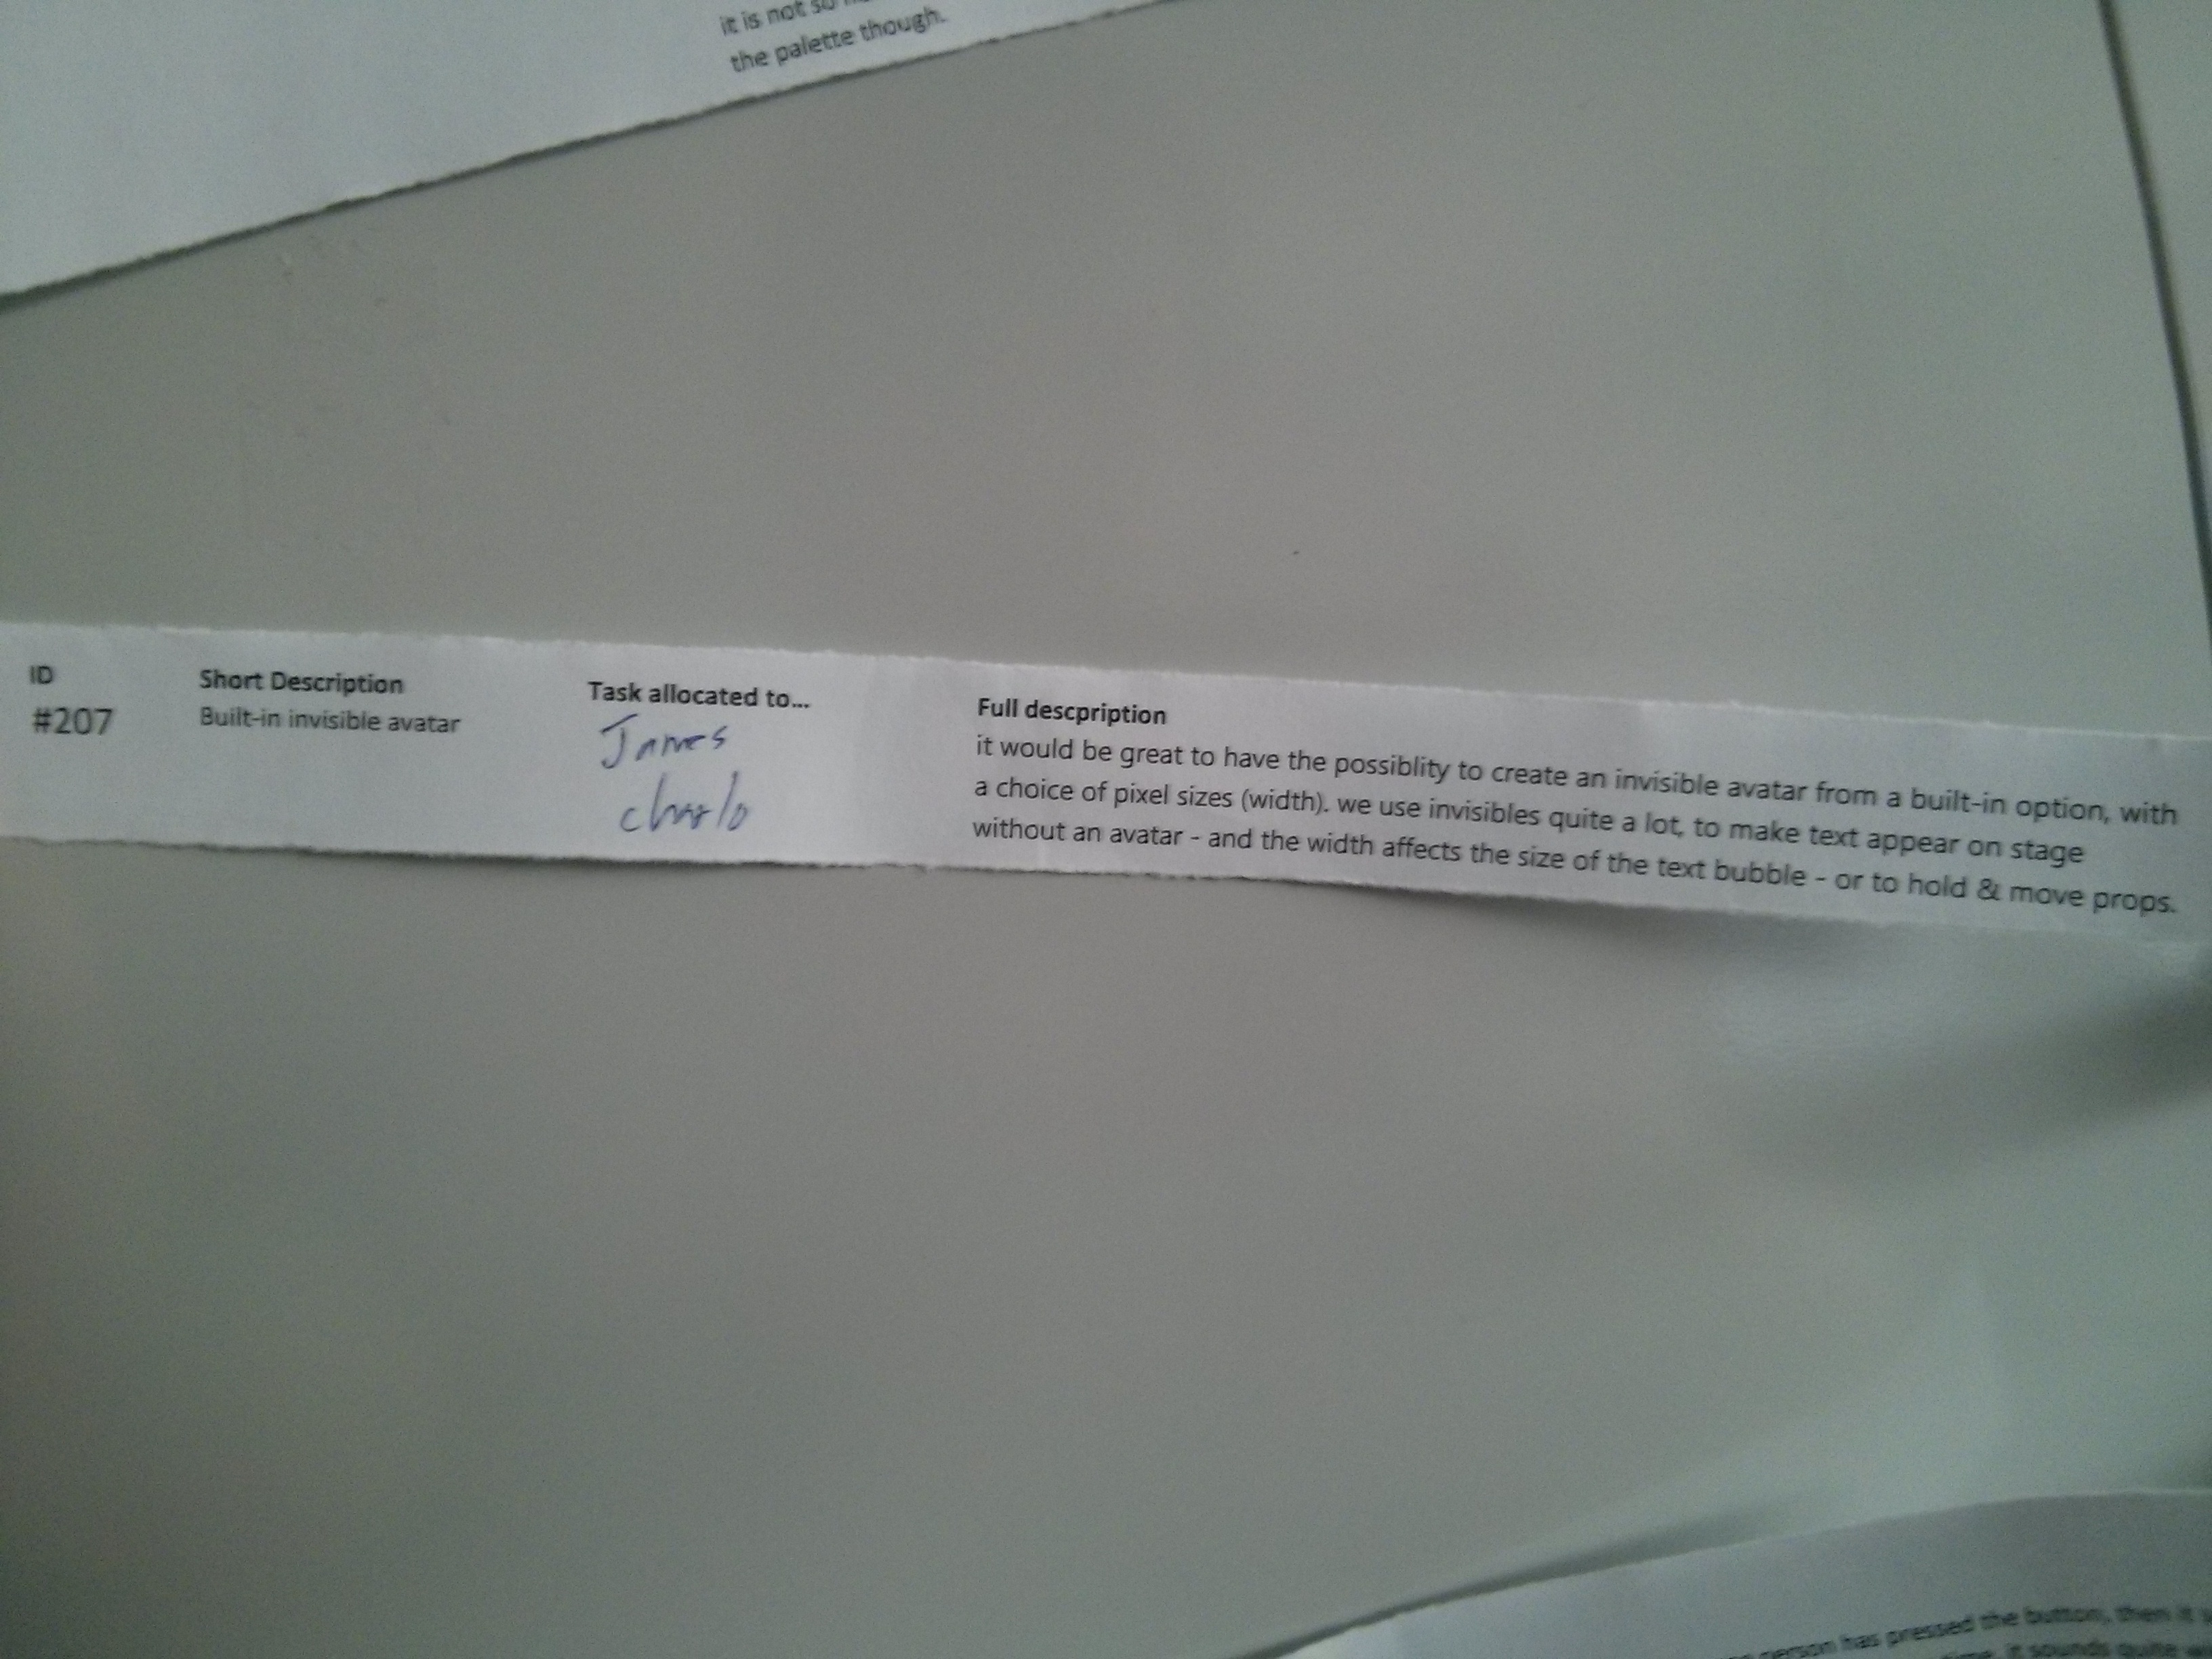 it is not so
the palette though.
ID
#207
Short Description
Built-in invisible avatar
Task allocated to...
James
Full descpription
it would be great to have the possiblity to create an invisible avatar from a built-in option, with
a choice of pixel sizes (width). we use invisibles quite a lot, to make text appear on stage
without an avatar - and the width affects the size of the text bubble - or to hold & move props.
person has pressed the button, then it
it sounds quite